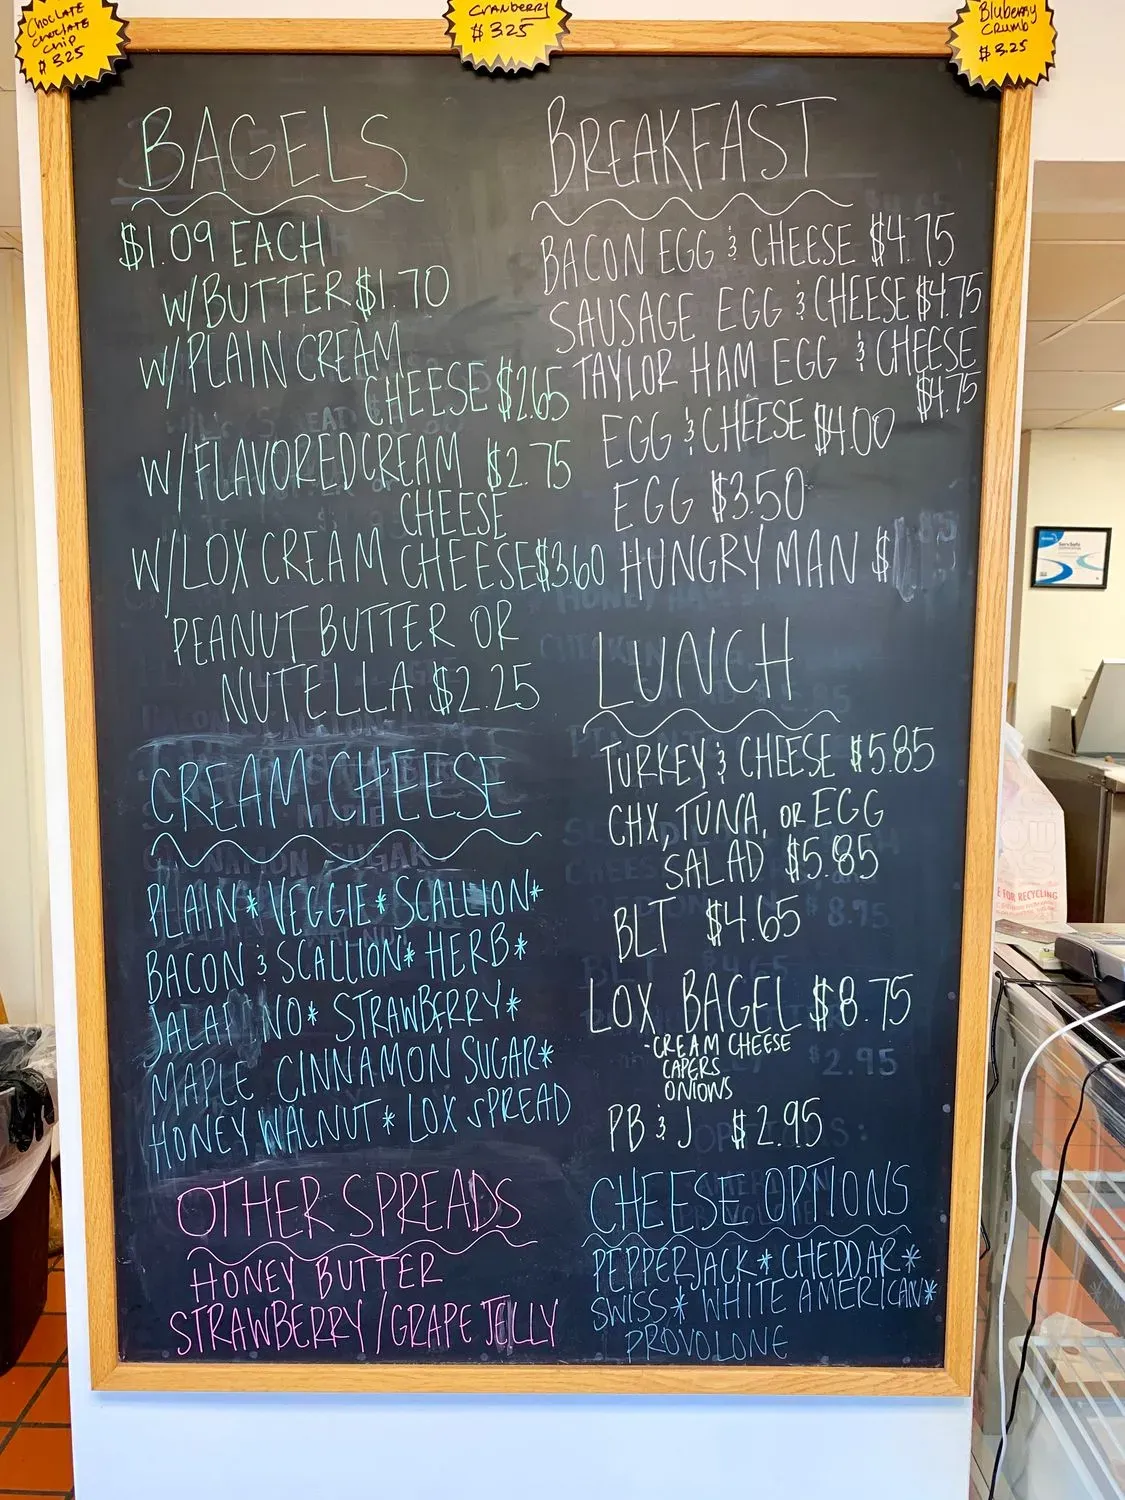 ChocLATE
ChocLATE
Chip
$ 3.25
CRANBERRY
$ 3.25
Bluberry
Crumb
$ 3.25
BAGELS
$1.09 EACH
W/BUTTER $1.70
W/PLAIN CREAM
CHEESE $2.65
W/FLAVORED CREAM $2.75
CHEESE
W/LOX CREAM CHEESE $3.60
PEANUT BUTTER OR
NUTELLA $2.25
CREAM CHEESE
PLAIN * VEGGIE * SCALLION *
BACON & SCALLION * HERB *
JALAPINO * STRAWBERRY *
MAPLE CINNAMON SUGAR *
HONEY WALNUT * LOX SPREAD
OTHER SPREADS
HONEY BUTTER
STRAWBERRY/GRAPE JELLY
BREAKFAST
BACON EGG & CHEESE $4.75
SAUSAGE EGG & CHEESE $4.75
TAYLOR HAM EGG & CHEESE
$4.75
EGG & CHEESE $4.00
EGG $3.50
HUNGRY MAN $
LUNCH
TURKEY & CHEESE $5.85
CHX, TUNA, OR EGG
SALAD $5.85
BLT $4.65
LOX BAGEL $8.75
-CREAM CHEESE
CAPERS
ONIONS
PB & J $2.95
CHEESE OPTIONS
PEPPERJACK * CHEDDAR *
SWISS * WHITE AMERICAN *
PROVOLONE
E FOR RECYCLING
ServSafe